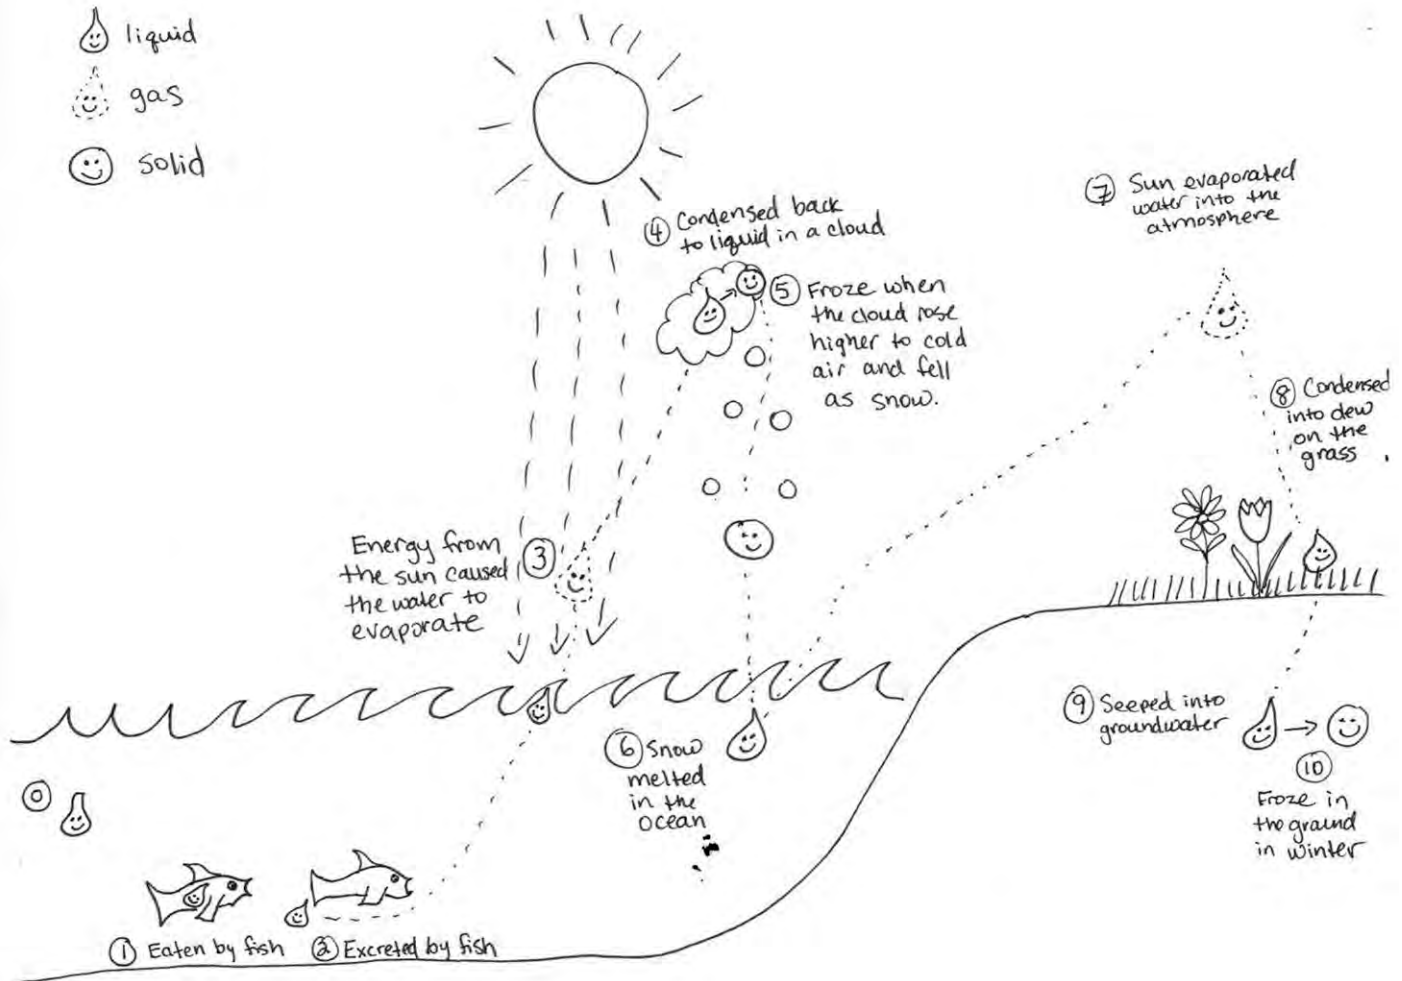 liquid
gas
solid
④ Condensed back
to liquid in a cloud
⑤ Froze when
the cloud rose
higher to cold
air and fell
as snow.
⑦ Sun evaporated
water into the
atmosphere
⑧ Condensed
into dew
on the
grass
Energy from ③
the sun caused
the water to
evaporate
⑥ Snow
melted
in the
ocean
⑨ Seeped into
groundwater
⑩
Froze in
the ground
in winter
⓪
① Eaten by fish
② Excreted by fish